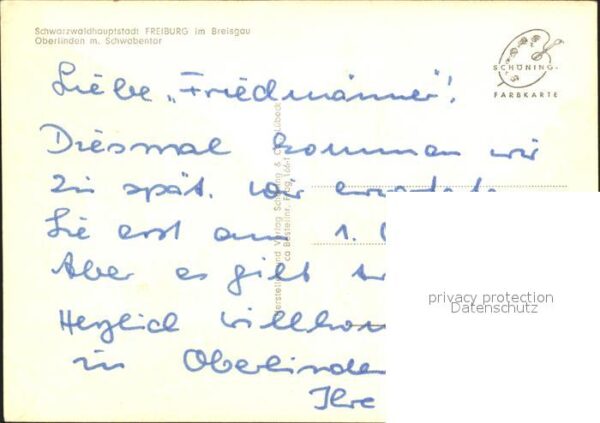 Schwarzwaldhauptstadt FREIBURG im Breisgau
Oberlinden m. Schwabentor
SCHÖNING
FARBKARTE
Liebe „Friedmänner"!
Diesmal kommen wir
zu spät. Wir
Sie erst am 1.
Aber es gilt
Herzlich willkom
in Oberlinden
Ihre
Herstellung und Verlag Schöning & Co., Lübeck
privacy protection
Datenschutz